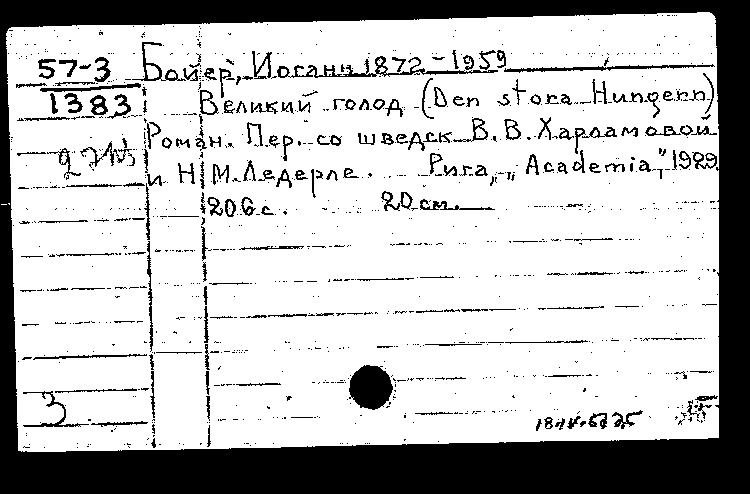 57-3 Бойер, Иоганн 1872-1959
1383 Великий голод (Den stora Hungern)
Роман. Пер. со шведск. В.В. Харламовой
и Н.М. Ледерле. Рига, „Academia", 1929.
206 с. 20 см.
3